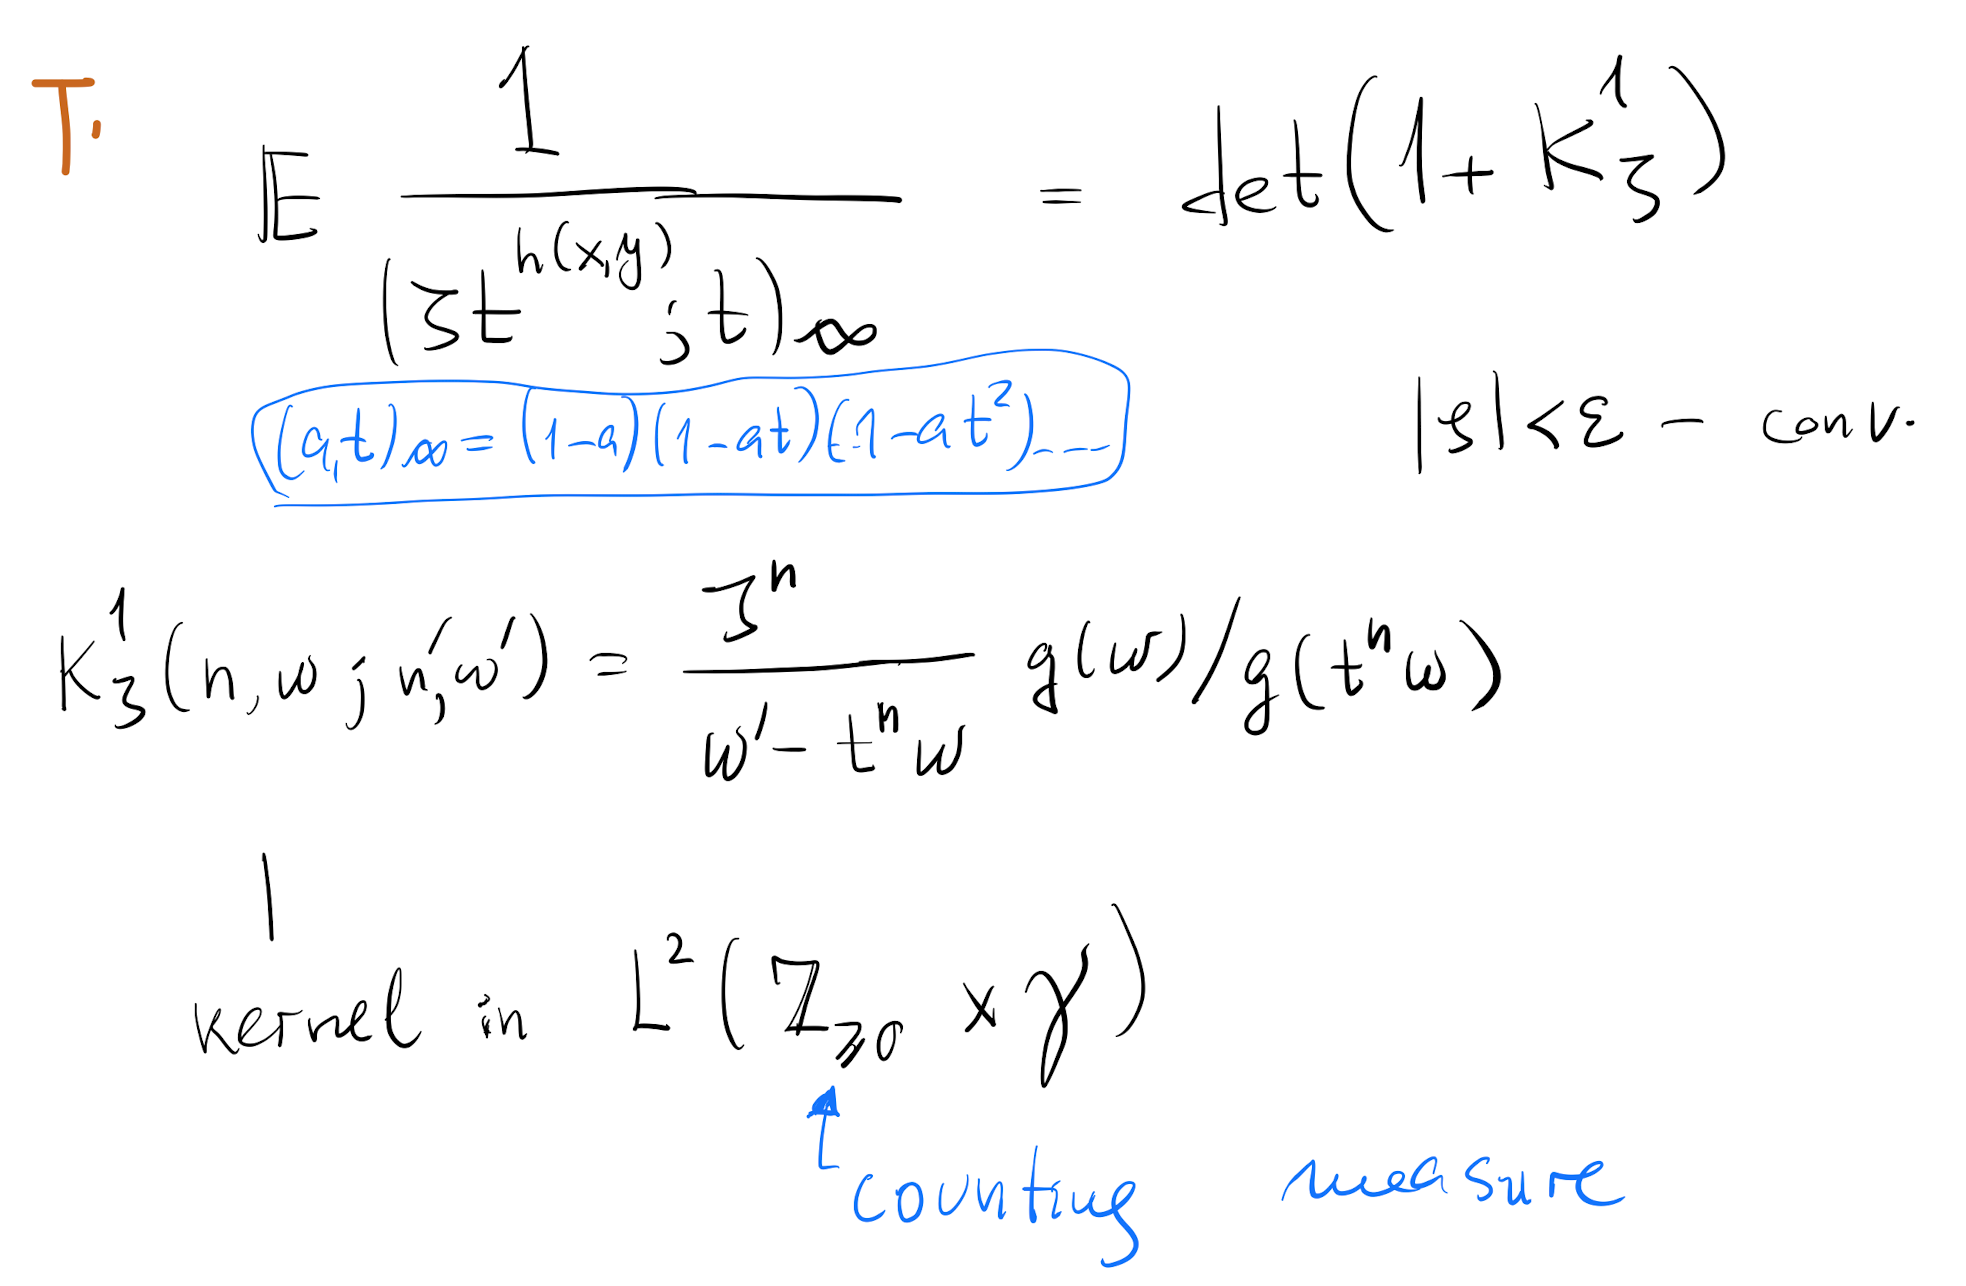 T. 𝔼 1/(ζt^{h(x,y)}; t)_∞ = det(1 + K^1_ζ)
(a,t)_∞ = (1-a)(1-at)(1-at^2)---
|ζ| < ε – conv.
K^1_ζ(n, w; n', w') = ζ^n/(w' - t^n w) g(w)/g(t^n w)
kernel in L^2(ℤ_{⩾0} × γ)
counting measure